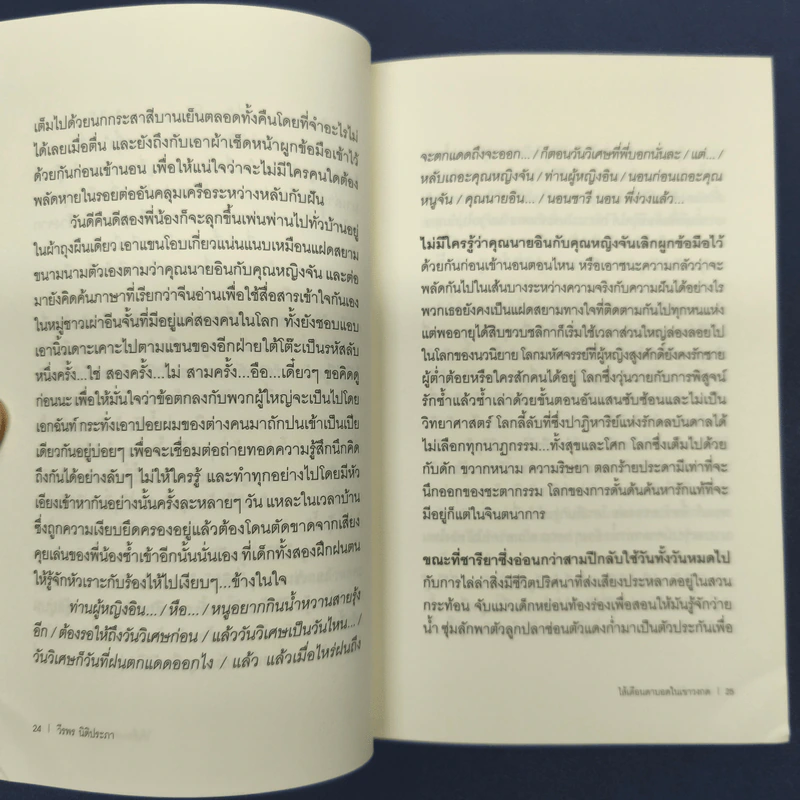 เต็มไปด้วยนกกระสาสีบานเย็นตลอดทั้งคืนโดยที่จำอะไรไม่
ได้เลยเมื่อตื่น และยังถึงกับเอาผ้าเช็ดหน้าผูกข้อมือเข้าไว้
ด้วยกันก่อนเข้านอน เพื่อให้แน่ใจว่าจะไม่มีใครคนใดต้อง
พลัดหายในรอยต่ออันคลุมเครือระหว่างหลับกับฝัน
วันดีคืนดีสองพี่น้องก็จะลุกขึ้นเพ่นพ่านไปทั่วบ้านอยู่
ในผ้าถุงผืนเดียว เอาแขนโอบเกี่ยวแน่นแนบเหมือนแฝดสยาม
ขนานนามตัวเองตามว่าคุณนายอินกับคุณหญิงจัน และต่อ
มายังคิดค้นภาษาที่เรียกว่าจีนอ่านเพื่อใช้สื่อสารเข้าใจกันเอง
ในหมู่ชาวเผ่าอีนจั้นที่มีอยู่แค่สองคนในโลก ทั้งยังชอบแอบ
เอานิ้วเดาะเคาะไปตามแขนของอีกฝ่ายใต้โต๊ะเป็นรหัสลับ
หนึ่งครั้ง...ใช่ สองครั้ง...ไม่ สามครั้ง...อือ...เดี๋ยวๆ ขอคิดดู
ก่อนนะ เพื่อให้มั่นใจว่าข้อตกลงกับพวกผู้ใหญ่จะเป็นไปโดย
เอกฉันท์ กระทั่งเอาปอยผมของต่างคนมาถักปนเข้าเป็นเปีย
เดียวกันอยู่บ่อยๆ เพื่อจะเชื่อมต่อถ่ายทอดความรู้สึกนึกคิด
ถึงกันได้อย่างลับๆ ไม่ให้ใครรู้ และทำทุกอย่างไปโดยมีหัว
เอียงเข้าหากันอย่างนั้นครั้งละหลายๆ วัน แหละในเวลาบ้าน
ซึ่งถูกความเงียบยึดครองอยู่แล้วต้องโดนตัดขาดจากเสียง
คุยเล่นของพี่น้องซ้ำเข้าอีกนั้นนั่นเอง ที่เด็กทั้งสองฝึกฝนตน
ให้รู้จักหัวเราะกับร้องไห้ไปเงียบๆ...ข้างในใจ
ท่านผู้หญิงอิน... / หือ... / หนูอยากกินน้ำหวานสายรุ้ง
อีก / ต้องรอให้ถึงวันวิเศษก่อน / แล้ววันวิเศษเป็นวันไหน... /
วันวิเศษก็วันที่ฝนตกแดดออกไง / แล้ว แล้วเมื่อไหร่ฝนถึง
24 | วีรพร นิติประภา
จะตกแดดถึงจะออก... / ก็ตอนวันวิเศษที่พี่บอกนั่นละ / แต่... /
หลับเถอะคุณหญิงจัน / ท่านผู้หญิงอิน / นอนก่อนเถอะคุณ
หนูจัน / คุณนายอิน... / นอนชารี นอน พี่ง่วงแล้ว...
ไม่มีใครรู้ว่าคุณนายอินกับคุณหญิงจันเลิกผูกข้อมือไว้
ด้วยกันก่อนเข้านอนตอนไหน หรือเอาชนะความกลัวว่าจะ
พลัดกันไปในเส้นบางระหว่างความจริงกับความฝันได้อย่างไร
พวกเธอยังคงเป็นแฝดสยามทางใจที่ติดตามกันไปทุกหนแห่ง
แต่พออายุได้สิบขวบชลิกาก็เริ่มใช้เวลาส่วนใหญ่ล่องลอยไป
ในโลกของนวนิยาย โลกมหัศจรรย์ที่ผู้หญิงสูงศักดิ์ยังคงรักชาย
ผู้ต่ำต้อยหรือใครสักคนได้อยู่ โลกซึ่งวุ่นวายกับการพิสูจน์
รักซ้ำแล้วซ้ำเล่าด้วยขั้นตอนอันแสนซับซ้อนและไม่เป็น
วิทยาศาสตร์ โลกลี้ลับที่ซึ่งปาฏิหาริย์แห่งรักดลบันดาลได้
ไม่เลือกทุกนาฏกรรม...ทั้งสุขและโศก โลกซึ่งเต็มไปด้วย
กับดัก ขวากหนาม ความริษยา ตลกร้ายประดามีเท่าที่จะ
นึกออกของชะตากรรม โลกของการดั้นด้นค้นหารักแท้ที่จะ
มีอยู่ก็แต่ในจินตนาการ
ขณะที่ชารียาซึ่งอ่อนกว่าสามปีกลับใช้วันทั้งวันหมดไป
กับการไล่ล่าสิ่งมีชีวิตปริศนาที่ส่งเสียงประหลาดอยู่ในสวน
กระท้อน จับแมวเด็กหย่อนท้องร่องเพื่อสอนให้มันรู้จักว่าย
น้ำ ซุ่มลักพาตัวลูกปลาช่อนตัวแดงก่ำมาเป็นตัวประกันเพื่อ
ไส้เดือนตาบอดในเขาวงกต | 25